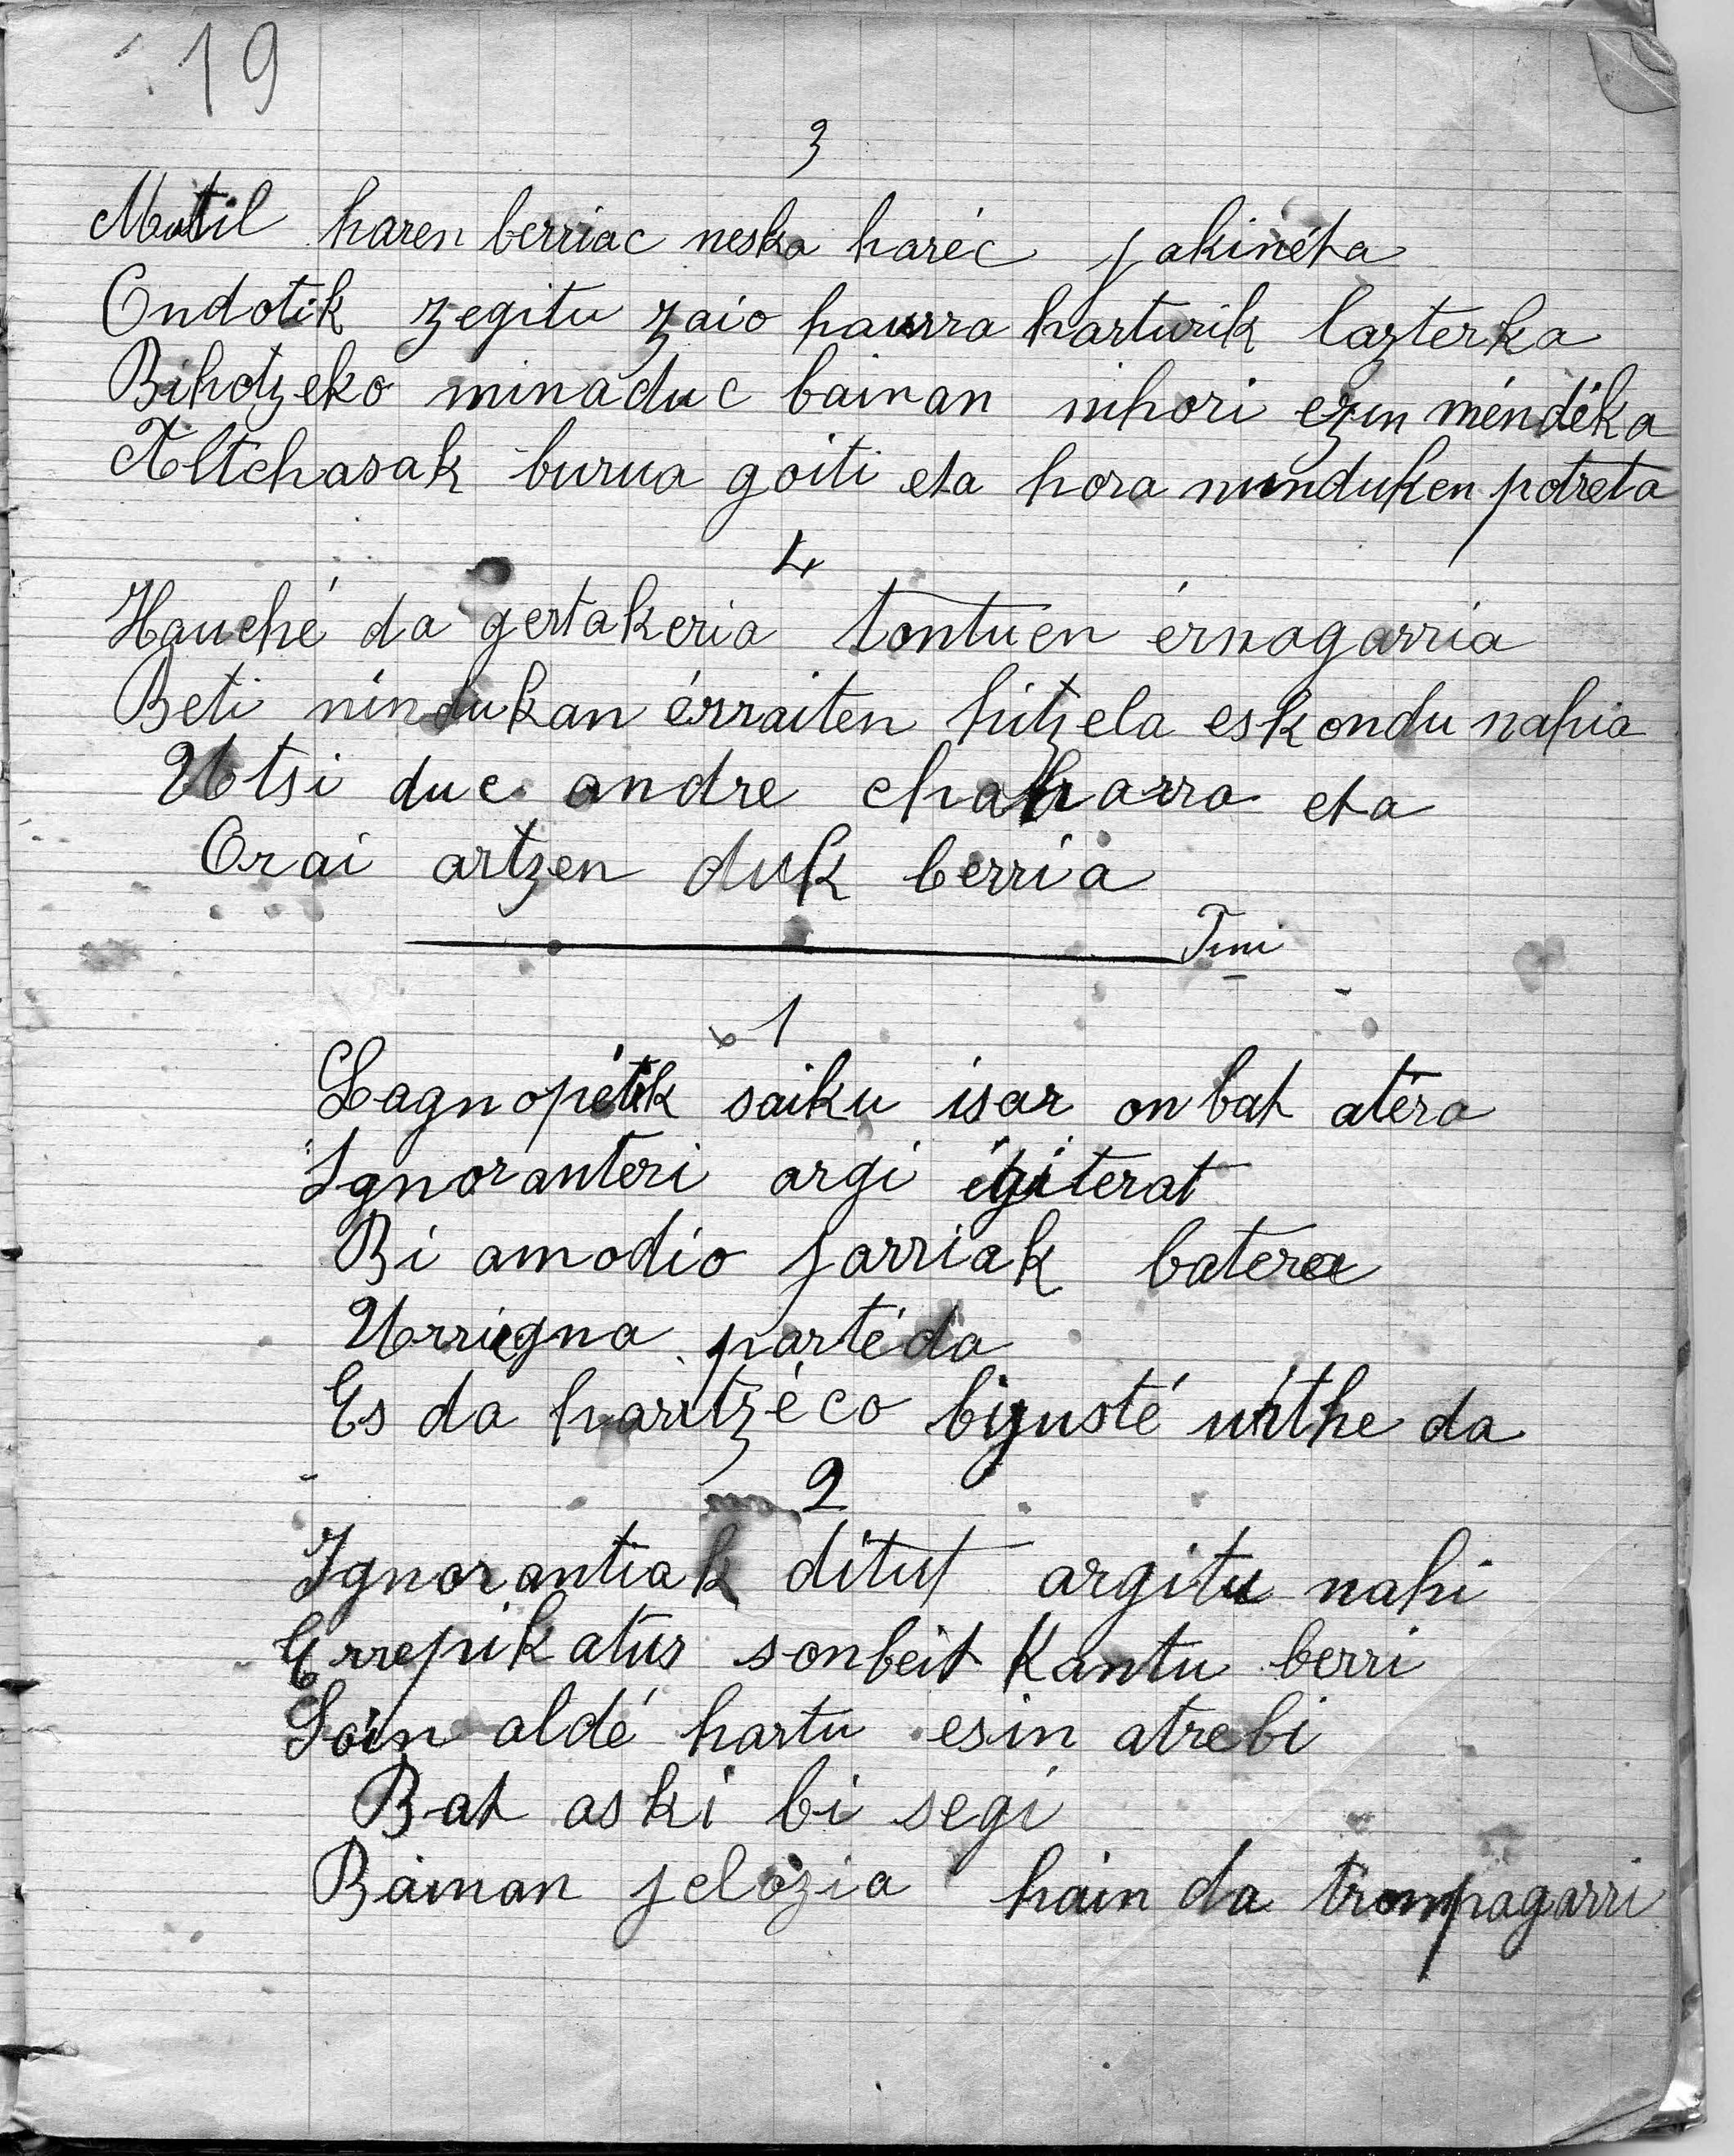 19
3
Mutil haren berriac neska haréc jakinéta
Ondotik zegitu zaio haurra harturik lazterka
Bihotzeko minaduc bainan nihori ezin méndéka
Altchasak burua goiti eta hora nunduken potreta
4
Hauché da gertakeria tontuen érnagarria
Beti nindukan érraiten hitzela eskondu nahia
Utsi duc andre chaharra eta
Orai artzen duk berria
Fini
1
Lagnopétik saiku isar on bat atéra
Ignoranteri argi égiterat
Bi amodio jarriak batera
Urrugna parté da
Es da harritzéco bijusté urithe da
2
Ignorantiak ditut argitu nahi
Errepikatus sonbeit Kantu berri
Soin aldé hartu esin atrebi
Bat aski bi segi
Bainan jelozia hain da trompagarri